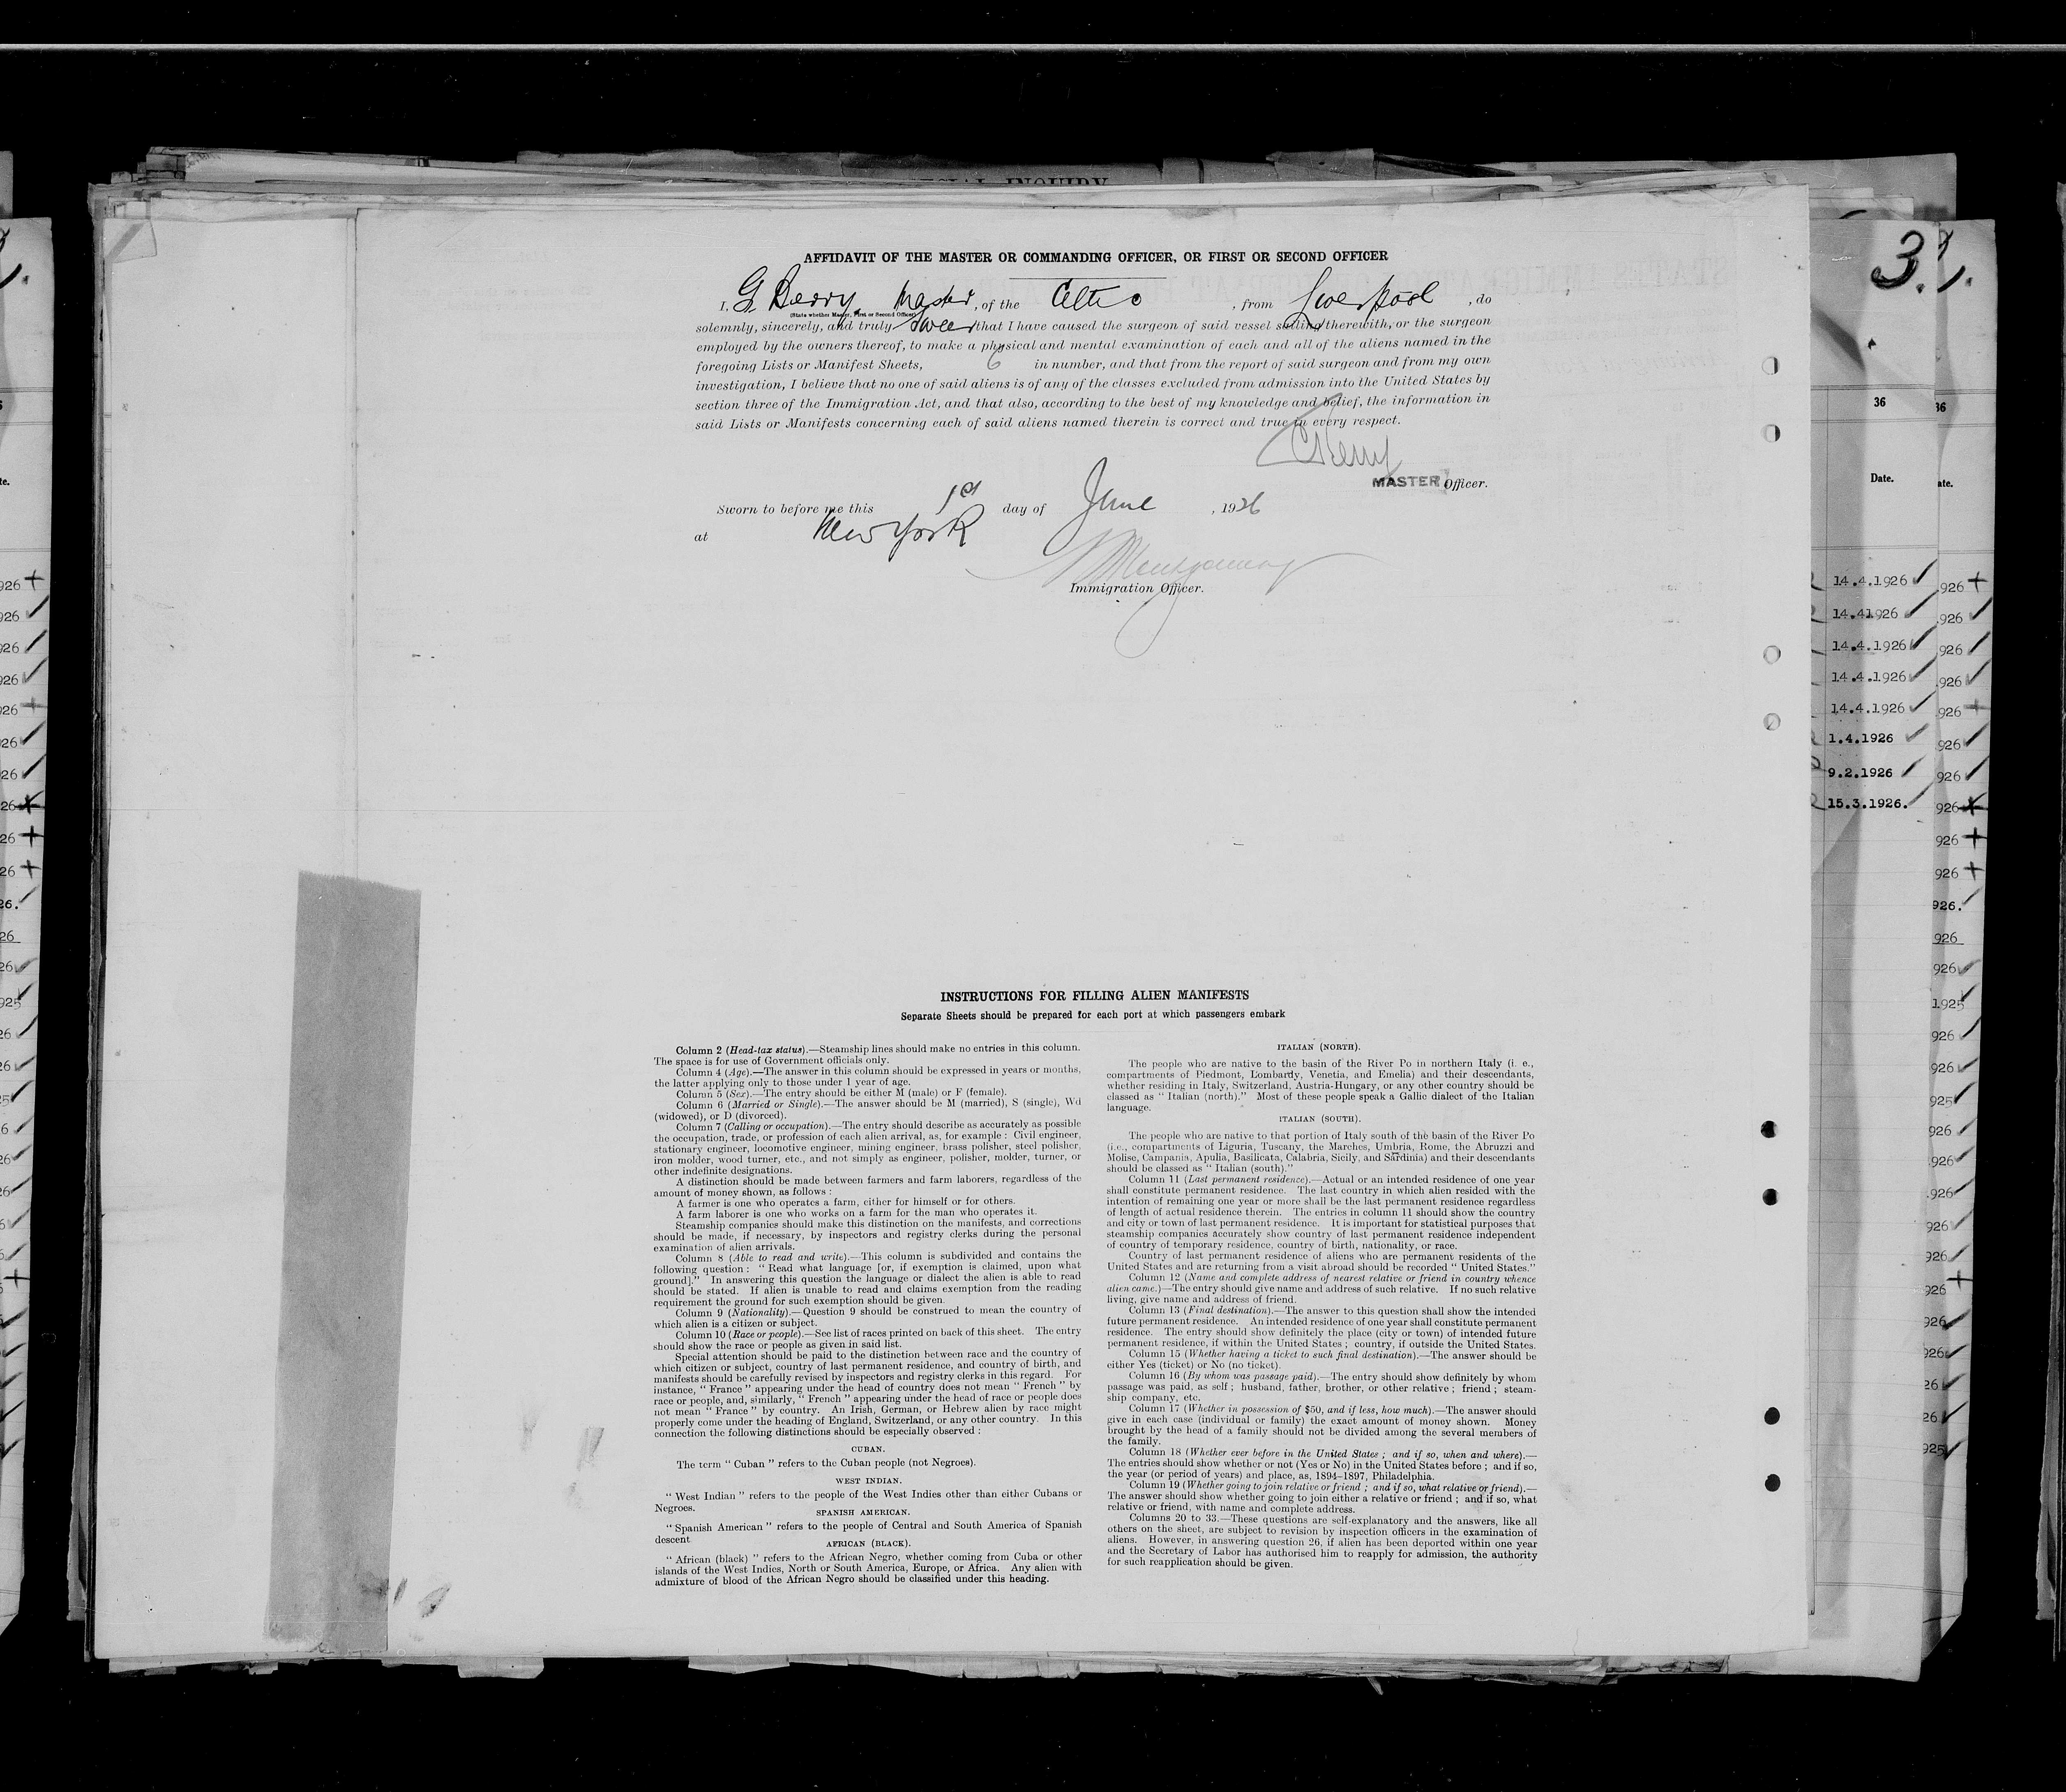 AFFIDAVIT OF THE MASTER OR COMMANDING OFFICER, OR FIRST OR SECOND OFFICER
I, G Berry, Master, of the Celtic, from Liverpool, do
(State whether Master, First or Second Officer)
solemnly, sincerely, and truly swear that I have caused the surgeon of said vessel sailing therewith, or the surgeon
employed by the owners thereof, to make a physical and mental examination of each and all of the aliens named in the
foregoing Lists or Manifest Sheets, 6 in number, and that from the report of said surgeon and from my own
investigation, I believe that no one of said aliens is of any of the classes excluded from admission into the United States by
section three of the Immigration Act, and that also, according to the best of my knowledge and belief, the information in
said Lists or Manifests concerning each of said aliens named therein is correct and true in every respect.
GBerry
MASTER Officer.
Sworn to before me this 1st day of June, 1926
at New York
Montgomery
Immigration Officer.
INSTRUCTIONS FOR FILLING ALIEN MANIFESTS
Separate Sheets should be prepared for each port at which passengers embark
Column 2 (Head-tax status).—Steamship lines should make no entries in this column.
The space is for use of Government officials only.
Column 4 (Age).—The answer in this column should be expressed in years or months,
the latter applying only to those under 1 year of age.
Column 5 (Sex).—The entry should be either M (male) or F (female).
Column 6 (Married or Single).—The answer should be M (married), S (single), Wd
(widowed), or D (divorced).
Column 7 (Calling or occupation).—The entry should describe as accurately as possible
the occupation, trade, or profession of each alien arrival, as, for example : Civil engineer,
stationary engineer, locomotive engineer, mining engineer, brass polisher, steel polisher,
iron molder, wood turner, etc., and not simply as engineer, polisher, molder, turner, or
other indefinite designations.
A distinction should be made between farmers and farm laborers, regardless of the
amount of money shown, as follows :
A farmer is one who operates a farm, either for himself or for others.
A farm laborer is one who works on a farm for the man who operates it.
Steamship companies should make this distinction on the manifests, and corrections
should be made, if necessary, by inspectors and registry clerks during the personal
examination of alien arrivals.
Column 8 (Able to read and write).—This column is subdivided and contains the
following question : “ Read what language [or, if exemption is claimed, upon what
ground].” In answering this question the language or dialect the alien is able to read
should be stated. If alien is unable to read and claims exemption from the reading
requirement the ground for such exemption should be given.
Column 9 (Nationality).—Question 9 should be construed to mean the country of
which alien is a citizen or subject.
Column 10 (Race or people).—See list of races printed on back of this sheet. The entry
should show the race or people as given in said list.
Special attention should be paid to the distinction between race and the country of
which citizen or subject, country of last permanent residence, and country of birth, and
manifests should be carefully revised by inspectors and registry clerks in this regard. For
instance, “ France ” appearing under the head of country does not mean “ French ” by
race or people, and, similarly, “ French ” appearing under the head of race or people does
not mean “ France ” by country. An Irish, German, or Hebrew alien by race might
properly come under the heading of England, Switzerland, or any other country. In this
connection the following distinctions should be especially observed :
CUBAN.
The term “ Cuban ” refers to the Cuban people (not Negroes).
WEST INDIAN.
“ West Indian ” refers to the people of the West Indies other than either Cubans or
Negroes.
SPANISH AMERICAN.
“ Spanish American ” refers to the people of Central and South America of Spanish
descent
AFRICAN (BLACK).
“ African (black) ” refers to the African Negro, whether coming from Cuba or other
islands of the West Indies, North or South America, Europe, or Africa. Any alien with
admixture of blood of the African Negro should be classified under this heading.
ITALIAN (NORTH).
The people who are native to the basin of the River Po in northern Italy (i. e.,
compartments of Piedmont, Lombardy, Venetia, and Emelia) and their descendants,
whether residing in Italy, Switzerland, Austria-Hungary, or any other country should be
classed as “ Italian (north).” Most of these people speak a Gallic dialect of the Italian
language.
ITALIAN (SOUTH).
The people who are native to that portion of Italy south of the basin of the River Po
(i.e., compartments of Liguria, Tuscany, the Marches, Umbria, Rome, the Abruzzi and
Molise, Campania, Apulia, Basilicata, Calabria, Sicily, and Sardinia) and their descendants
should be classed as “ Italian (south).”
Column 11 (Last permanent residence).—Actual or an intended residence of one year
shall constitute permanent residence. The last country in which alien resided with the
intention of remaining one year or more shall be the last permanent residence regardless
of length of actual residence therein. The entries in column 11 should show the country
and city or town of last permanent residence. It is important for statistical purposes that
steamship companies accurately show country of last permanent residence independent
of country of temporary residence, country of birth, nationality, or race.
Country of last permanent residence of aliens who are permanent residents of the
United States and are returning from a visit abroad should be recorded “ United States.”
Column 12 (Name and complete address of nearest relative or friend in country whence
alien came.)—The entry should give name and address of such relative. If no such relative
living, give name and address of friend.
Column 13 (Final destination).—The answer to this question shall show the intended
future permanent residence. An intended residence of one year shall constitute permanent
residence. The entry should show definitely the place (city or town) of intended future
permanent residence, if within the United States ; country, if outside the United States.
Column 15 (Whether having a ticket to such final destination).—The answer should be
either Yes (ticket) or No (no ticket).
Column 16 (By whom was passage paid).—The entry should show definitely by whom
passage was paid, as self ; husband, father, brother, or other relative ; friend ; steam-
ship company, etc.
Column 17 (Whether in possession of $50, and if less, how much).—The answer should
give in each case (individual or family) the exact amount of money shown. Money
brought by the head of a family should not be divided among the several members of
the family.
Column 18 (Whether ever before in the United States ; and if so, when and where).—
The entries should show whether or not (Yes or No) in the United States before ; and if so,
the year (or period of years) and place, as, 1894–1897, Philadelphia.
Column 19 (Whether going to join relative or friend ; and if so, what relative or friend).—
The answer should show whether going to join either a relative or friend ; and if so, what
relative or friend, with name and complete address.
Columns 20 to 33.—These questions are self-explanatory and the answers, like all
others on the sheet, are subject to revision by inspection officers in the examination of
aliens. However, in answering question 26, if alien has been deported within one year
and the Secretary of Labor has authorised him to reapply for admission, the authority
for such reapplication should be given.
3.
36
Date.
14.4.1926
14.41926
14.4.1926
14.4.1926
14.4.1926
1.4.1926
9.2.1926
15.3.1926.